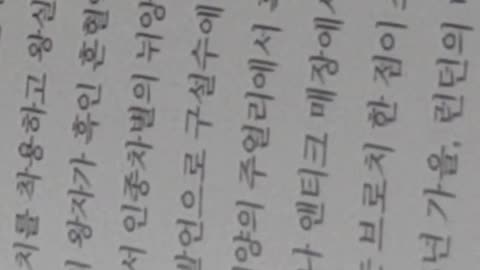 치를 착용하고 왕실
왕자가 흑인 혼혈
서 인종차별의 뉘앙
발언으로 구설수에
양의 주얼리에서
앤티크 매장에서
브로치 한 점이
년 가을, 런던의